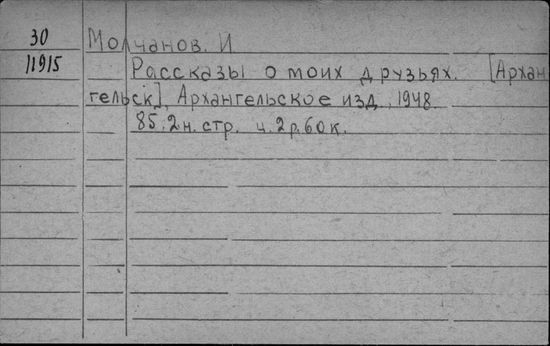 30 Молчанов. И
11915 Рассказы о моих друзьях. [Архан
гельск], Архангельское изд., 1948.
85.2н. стр. ц. 2р. 60к.